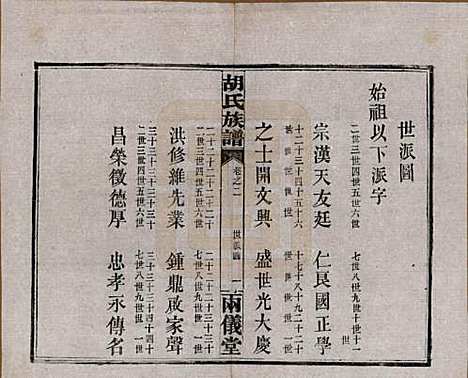 世派圖
始祖以下派字
二世三世四世五世六世 七世八世九世十世十一世
宗漢天友廷 仁良國正學
十二世十三世十四世十五世十六世 十七世十八世十九世二十世二十一世
之士開文興 盛世光大慶
胡氏族譜 卷之二 世派圖 一 兩儀堂
二十二世二十三世二十四世二十五世二十六世 二十七世二十八世二十九世三十世三十一世
洪修維先業 鍾鼎啟家聲
三十二世三十三世三十四世三十五世三十六世 三十七世三十八世三十九世四十世四十一世
昌榮徵德厚 忠孝永傳名